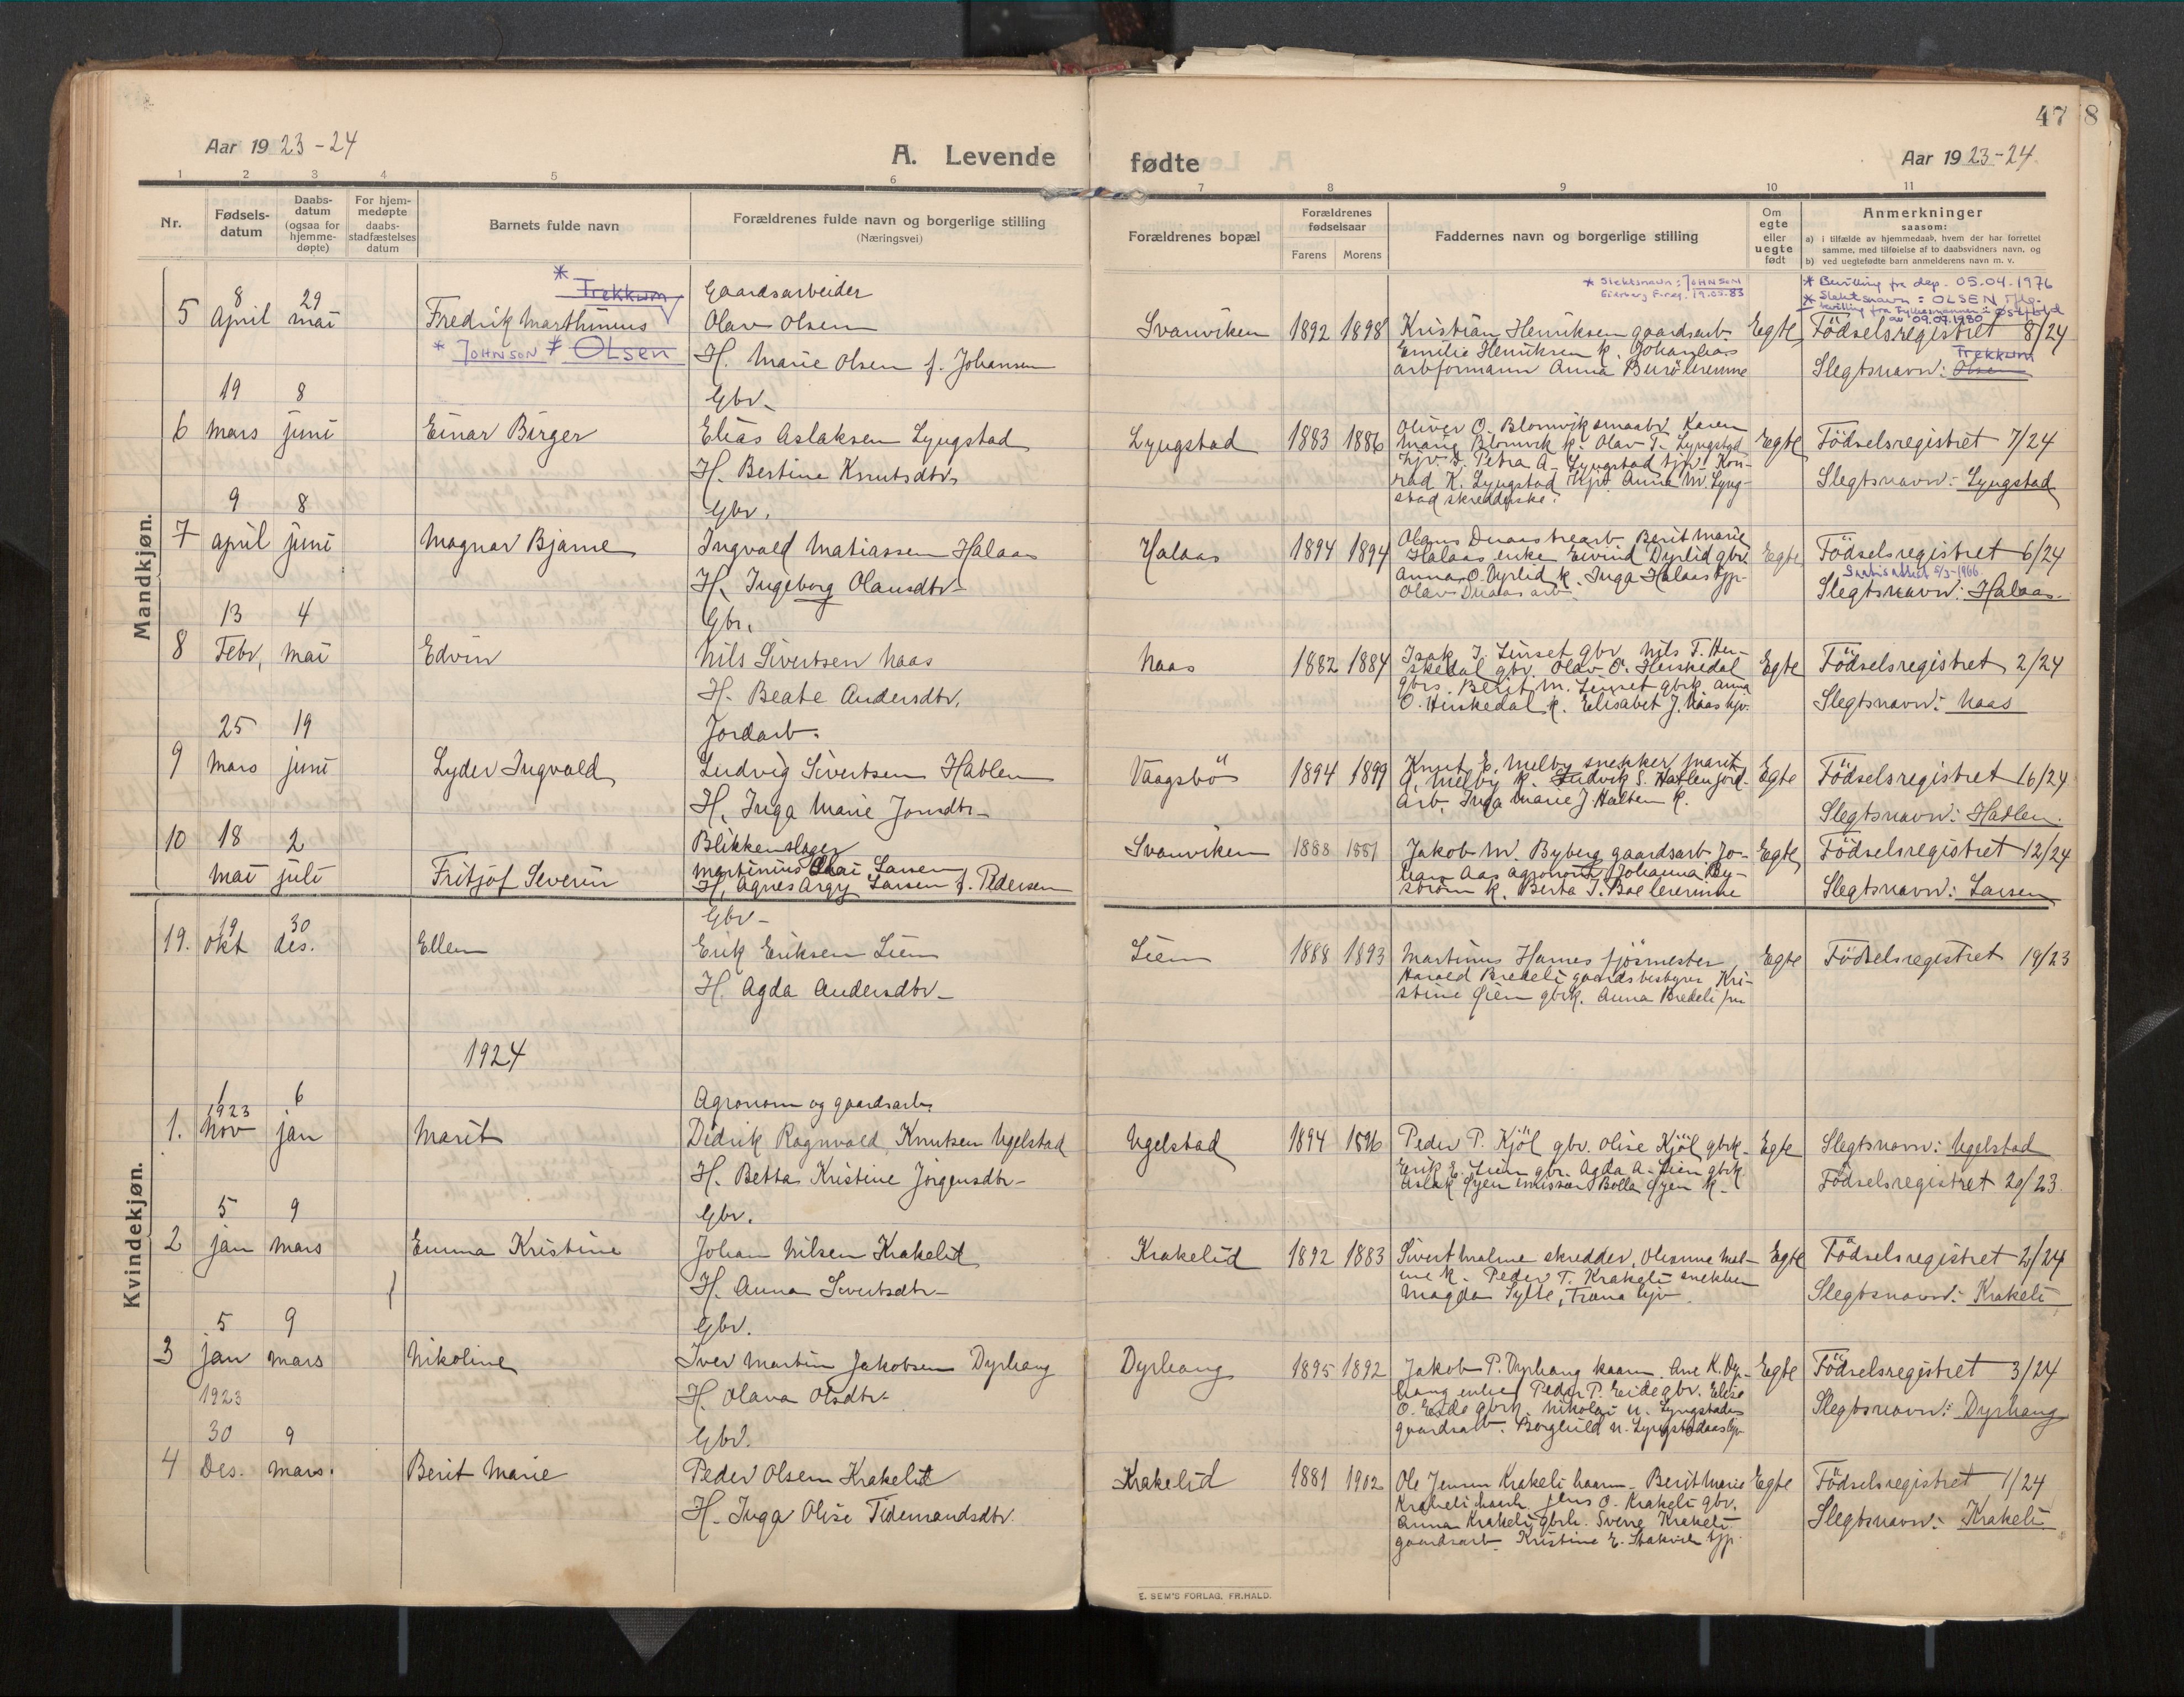 47
8
Aar 1923-24
A. Levende
fødte
Aar 1923-24
1 2 3 4 5 6 7 8 9 10 11
Nr.
Fødsels-
datum
Daabs-
datum
(ogsaa for
hjemme-
døpte)
For hjem-
medøpte
daabs-
stadfæstelses
datum
Barnets fulde navn
Forældrenes fulde navn og borgerlige stilling
(Næringsvei)
Forældrenes bopæl
Forældrenes
fødselsaar
Farens Morens
Faddernes navn og borgerlige stilling
Om
egte
eller
uegte
født
Anmerkninger
saasom:
a) i tilfælde av hjemmedaab, hvem der har forrettet
samme, med tilføielse af to daabsvidners navn, og
b) ved uegtefødte barn anmelderens navn m. v.
Mandkjøn.
5
8 April
29 mai
* Trekkum
Fredrik Marthinius
* JOHNSON * OLSEN
Gaardsarbeider
Olav Olsen
H. Marie Olsen f. Johansen
Svanviken
1892 1898
* Slektsnavn: JOHNSON
Eidsberg F.reg. 19.05.83
Kristian Henriksen gaardsarb.
Emilie Henriksen k. Johan
arbformann Anna Lererinne
Egte
* Bevilling fra dep. 05.04.1976
* Slektsnavn: OLSEN iflg.
bevilling fra fylkesmannen i Østfold
av 09.09.1980
Födselsregistret 8/24
Trekkum
Slegtsnavn: Olsen
6
19 mars
8 juni
Einar Birger
Gbr.
Elias Aslaksen Lyngstad
H. Bertine Knutsdtr.
Lyngstad
1883 1886
Oliver O. Blomvik smaabr. Karen
Marie Blomvik k. Olav T. Lyngstad
Petra A. Lyngstad tjp. Kon-
rad K. Lyngstad Anna M. Lyng-
stad skredderske
Egte
Födselsregistret 7/24
Slegtsnavn: Lyngstad
7
9 april
8 juni
Magnar Bjarne
Gbr.
Ingvald Matiassen Halaas
H. Ingeborg Olausdtr.
Halaas
1894 1894
Olaus Duaas trearb. Berit Marie
Halaas enke Eivind Dyrlid gbr.
Anna O. Dyrlid k. Inga Halaas tjp.
Olav Duaas arb.
Egte
Födselsregistret 6/24
Gratis attest 5/3-1966.
Slegtsnavn: Halaas.
8
13 Febr,
4 mai
Edvin
Gbr.
Nils Sivertsen Naas
H. Beate Andersdtr.
Naas
1882 1884
Isak J. Linset gbr. Nils T. Hes-
kedal gbr. Olav O. Heskedal
gbrs. Berit M. Linset gbrk. Anna
O. Heskedal k. Elisabet J. Naas hjv.
Egte
Födselsregistret 2/24
Slegtsnavn: Naas
9
25 Mars
19 juni
Lyder Ingvald
Jordarb.
Ludvig Sivertsen Hatlen
H. Inga Marie Jonsdtr.
Vaagsbö
1894 1899
Knut E. Melby snekker Marit
A. Melby k. Ludvik S. Hatlen jord-
arb. Inga Marie J. Hatlen k.
Egte
Födselsregistret 16/24
Slegtsnavn: Hatlen.
10
18 mai
2 juli
Fritjof Severin
Blikkenslager
Martinius Larsen
H. Agnes Argy Larsen f. Pedersen
Svanviken
1888 1887
Jakob M. Byberg gaardsarb. Jo-
han Aas agronom Johanna By-
ström k. Berta T. Boe lererinne
Egte
Födselsregistret 12/24
Slegtsnavn: Larsen
Kvindekjøn.
19.
19 okt
30 des.
Ellen
Gbr.
Erik Eriksen Lien
H. Agda Andersdtr.
Lien
1888 1893
Martinus Harnes fjösmester
Harald Brekeli gaardsbestyrer Kri-
stine Öien gbrk. Anna Brekeli fru
Egte
Födselsregistret 19/23
1924
1.
1 1923 nov
6 jan
Marit
Agronom og gaardsarb.
Didrik Ragnvald Knutsen Ugelstad
H. Betta Kristine Jörgensdtr.
Ugelstad
1894 1896
Peder P. Kjöl gbr. Olise Kjöl gbrk.
Erik E. Lien gbr. Agda A. Lien gbrk
Aslak Öyen emissær Bolla Öyen k.
Egte
Slegtsnavn: Ugelstad
Födselsregistret 20/23
2
5 jan
9 mars
Emma Kristine
Gbr.
Johan Nilsen Krakelid
H. Anna Sivertsdtr.
Krakelid
1892 1883
Sivert Malme skredder, Olianne Mal-
me k. Peder T. Krakeli snekker
Magda Sylte, Træna hjv.
Egte
Födselsregistret 2/24
Slegtsnavn: Krakeli
3
5 jan
9 mars
Nikoline
Gbr.
Iver Martin Jakobsen Dyrhang
H. Olava Olsdtr.
Dyrhang
1895 1892
Jakob P. Dyrhang kaarm. Ane K. Dyr-
hang enke Peder P. Eide gbr. Elise
O. Eide gbrk. Nikolai N. Lyngstadaas
gaardsarb. Borghild N. Lyngstadaas tjp
Egte
Födselsregistret 3/24
Slegtsnavn: Dyrhang
4
1923
30 Des.
9 mars.
Berit Marie
Gbr.
Peder Olsen Krakelid
H. Inga Olise Tidemandsdtr.
Krakelid
1881 1902
Ole Jensen Krakeli kaarm. Berit Marie
Krakeli kaark. Jens O. Krakeli gbr.
Anna Krakeli gbrk. Sverre Krakeli
gaardsarb. Kristine E. Stakvik tjp.
Egte
Födselsregistret 1/24
Slegtsnavn: Krakeli
E. SEM'S FORLAG, FR.HALD.